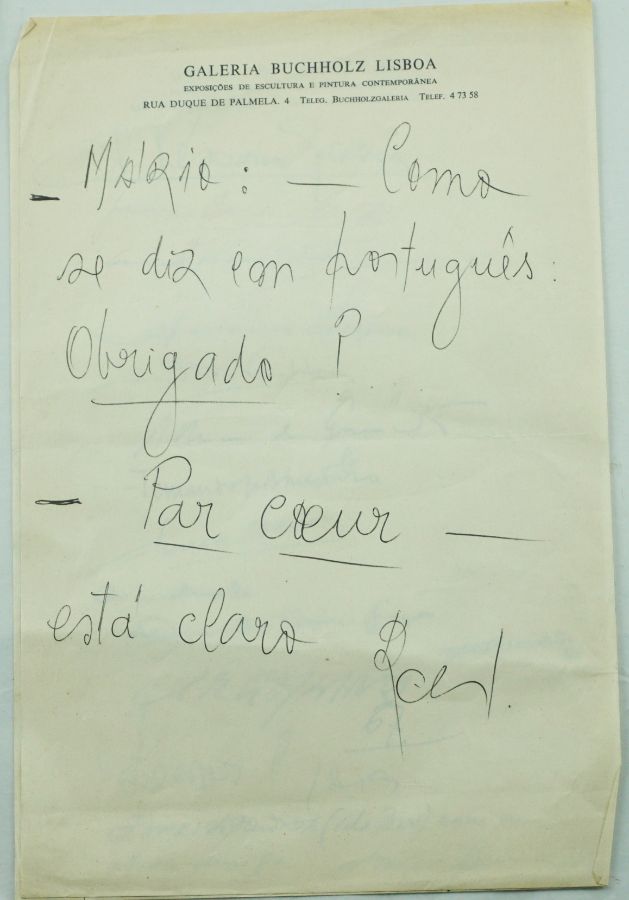 GALERIA BUCHHOLZ LISBOA
EXPOSIÇÕES DE ESCULTURA E PINTURA CONTEMPORÂNEA
RUA DUQUE DE PALMELA. 4 TELEG. BUCHHOLZGALERIA TELEF. 4 73 58
- MÁRIO: — Como
se diz em português:
Obrigado ?
- Par cœur —
está claro